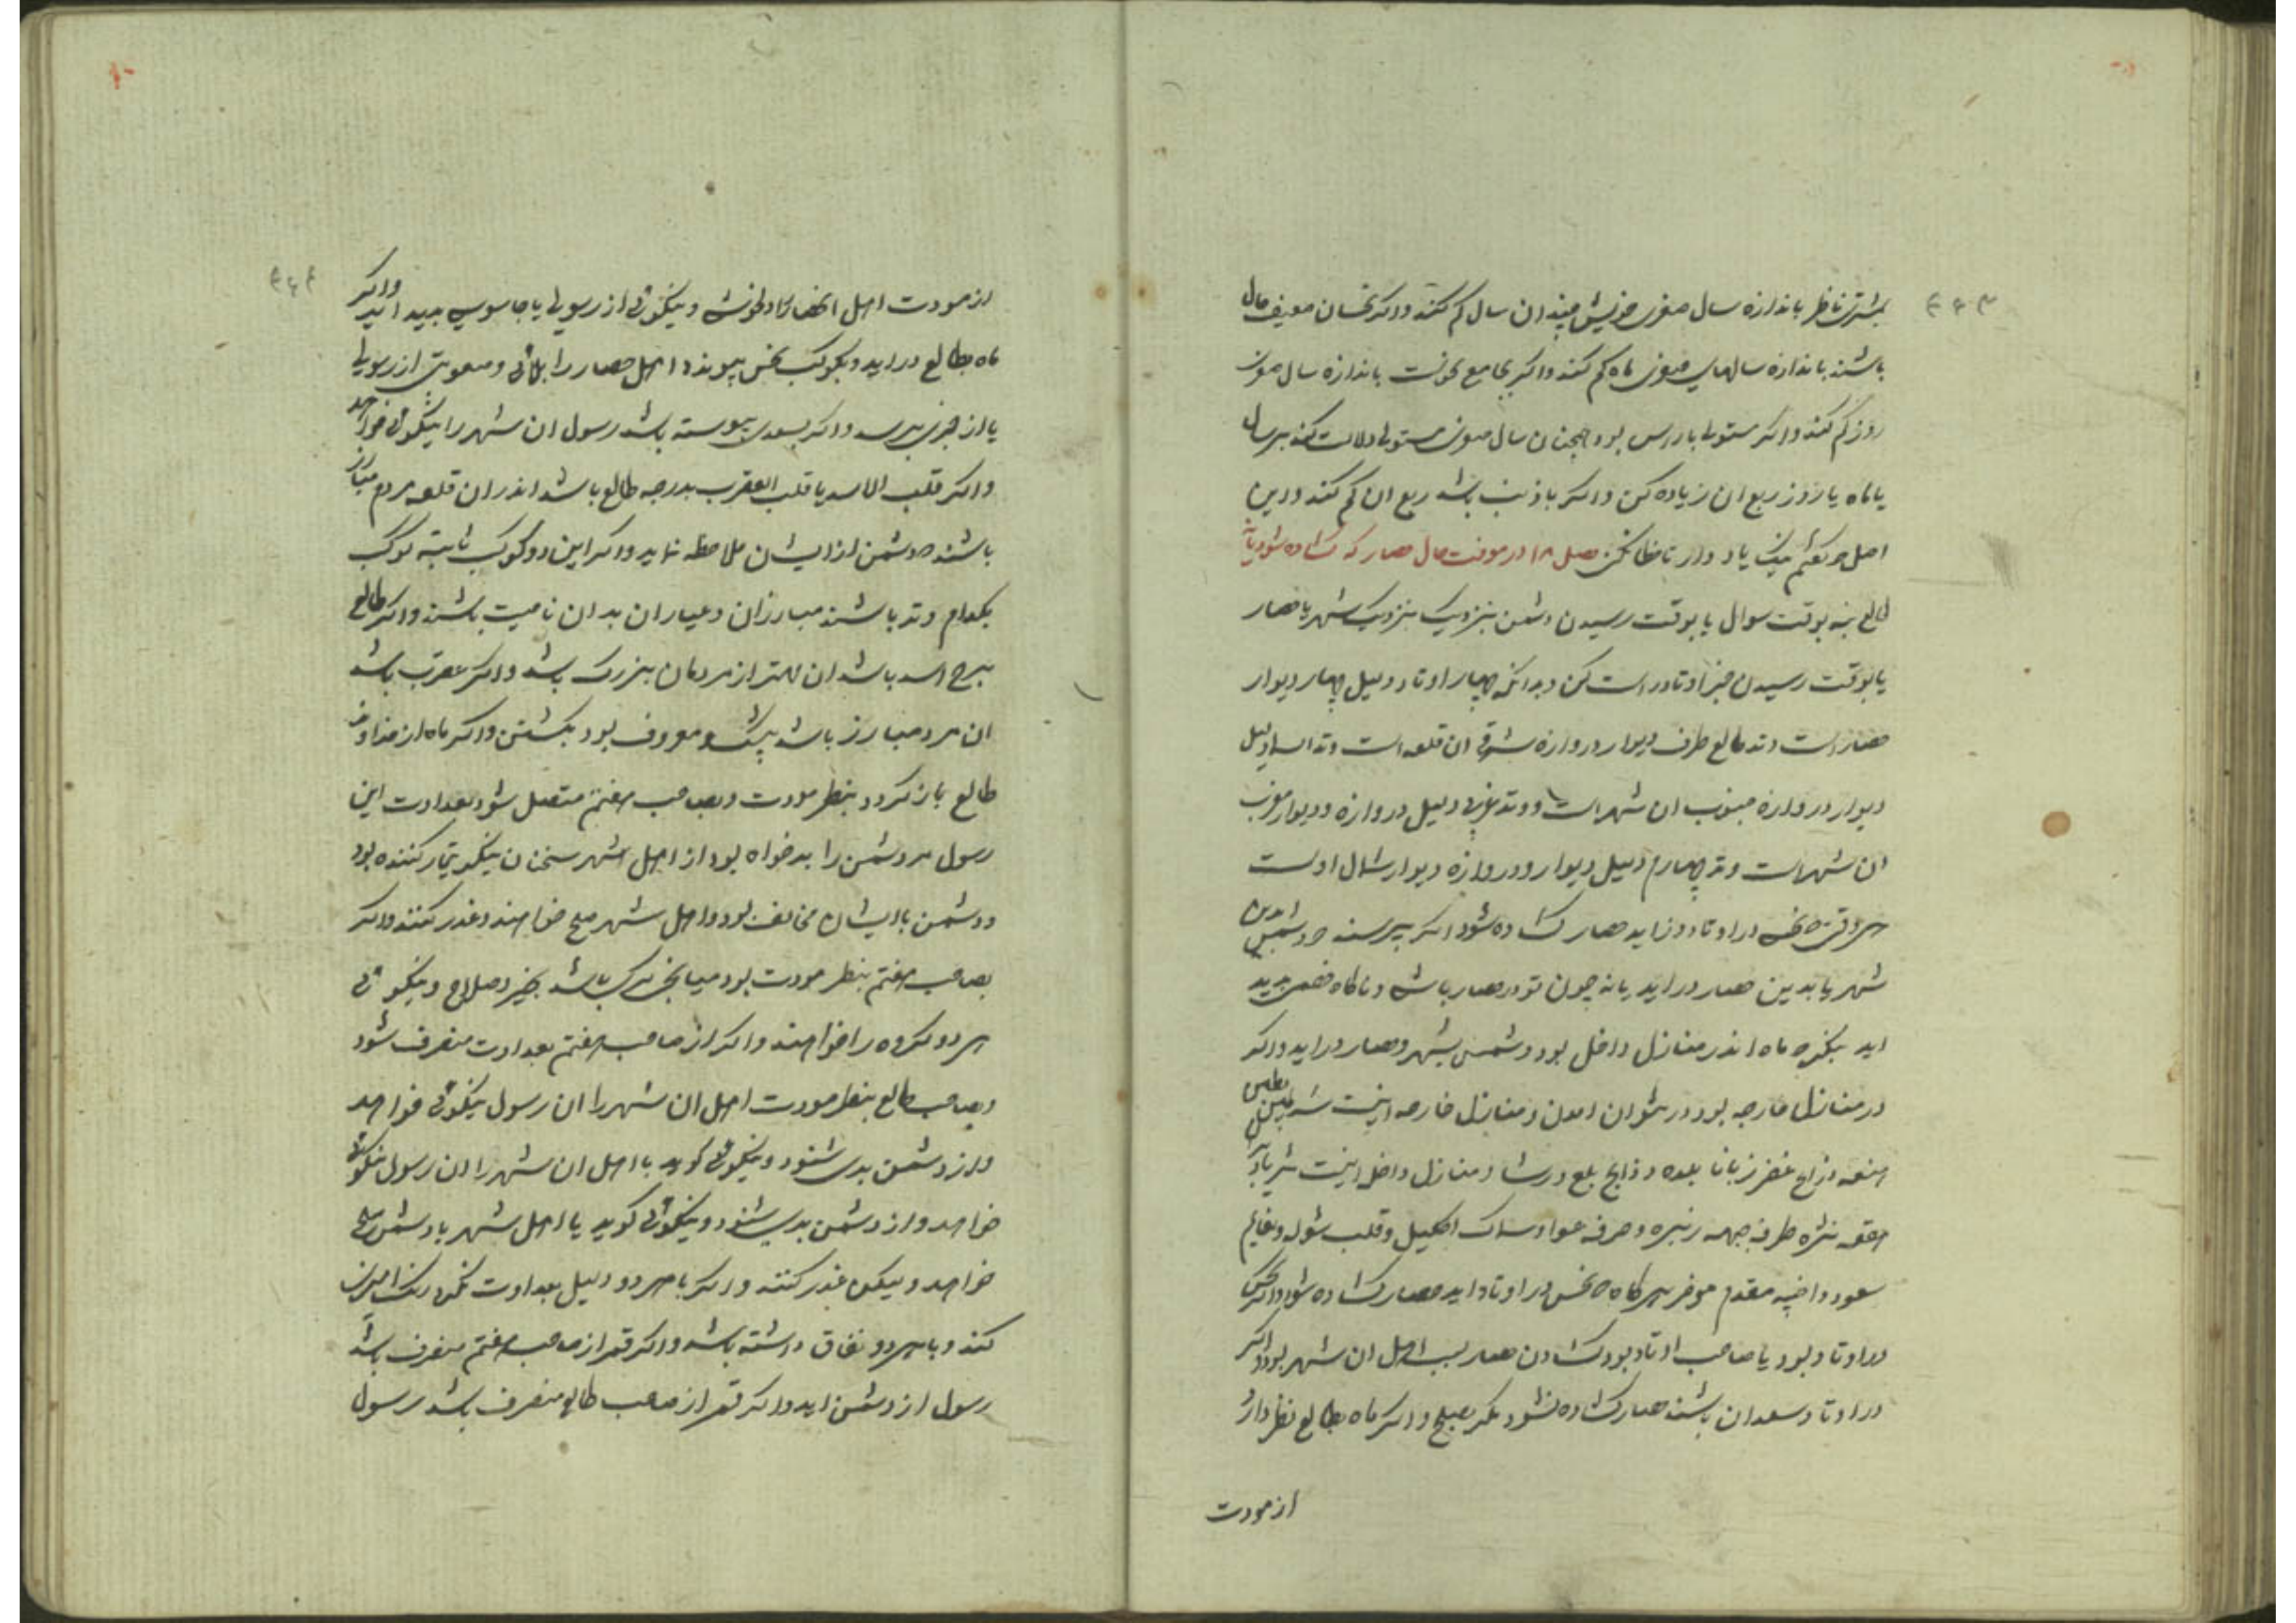 بمشتری ناظر باندازه سال صغری خویش چندان سال کم کنند واکر نحسان ضعیف حال
باشند باندازه سالهای صغری ماه کم کنند واکر بجامع نحوست باندازه سال صغری
روز کم کند واکر مستولی باراس بود همچنان سال صغری مستولی دلالت کند بر سال
یا ماه یا روز ربع ان زیاده کن واکر با ذنب باشد ربع ان کم کند و این
اصل که گفتم نیک یاد دار تا خطا نکنی فصل ۱۸ در معرفت حال حصار که کشاده شود یا نه
طالع بنه بوقت سوال یا بوقت رسیدن دشمن بنزدیک بنزدیک شهر یا حصار
یا بوقت رسیدن خبر اوتاد راست کن و بدانکه چهار اوتاد دلیل چهار دیوار
حصار است وتد طالع طرف دیوار دروازه شرقی ان قلعه است وتد السما دلیل
دیوار دروازه جنوب ان شهر است و وتد غربی دلیل دروازه و دیوار مغرب
ان شهر است وتد چهارم دلیل دیوار و دروازه دیوار شمال اوست
هر وقتی که نحس در اوتاد در اید حصار کشاده شود اکر پرسند که دشمن بدین
شهر یا بدین حصار در اید یا نه چون تو در حصار باشی و ناکاه خصمی پدید
اید بنکر که ماه اندر منازل داخل بود دشمن بشهر و حصار در اید واکر
در منازل خارجه بود در نتوان امدن و منازل خارجه اینست شرطین بطین
هنعه ذراع غفر زبانا بلده و ذابح بلع و رشا و منازل داخل اینست ثریا
هقعه نثره طرفه جبهه زبره و صرفه عوا و سماک اکلیل و قلب شوله و نعایم
سعود و اخبیه مقدم موخر هر کاه که نحس در اوتاد اید حصار کشاده شود واکر نحس
در اوتاد بود یا صاحب اوتاد بود کشادن حصار بسبب اهل ان شهر بود واکر
در اوتاد سعدان باشند حصار کشاده نشود مکر بصلح واکر ماه بطالع نظر دارد
از مودت
از مودت اهل انحصار شاد و خوش و نیکوئی از رسولی یا جاسوسی پدید اید واکر
ماه بطالع در اید و بکوکب نحس پیوندد اهل حصار را بلائی و صعوبتی از رسولی
یا از خبری برسد واکر بسعدی پیوسته باشد رسول ان شهر را نیکوئی خواهد
واکر قلب الاسد یا قلب العقرب بدرجه طالع باشد اندران قلعه مردم مبارز
باشند که دشمن از ایشان ملاحظه نماید واکر این دو کوکب ثابته کوکب
بکدام وتد باشند مبارزان و عیاران بدان ناحیت باشند واکر طالع
برج اسد باشد ان مهتر از مردمان بزرک باشد واکر عقرب باشد
ان مرد مبارز باشد بیشک و معروف بود بکشتن واکر ماه از خداوند
طالع باز کردد بنظر مودت و بصاحب هفتم متصل شود بعداوت این
رسول مر دشمن را بدخواه بود از اهل شهر سخنان نیکو تیمار کننده بود
و دشمن با ایشان مخالف بود و اهل شهر صلح خواهند و غدر کنند واکر
بصاحب هفتم بنظر مودت بود میانجی نیک باشد بخیر و صلاح و نیکوئی
هر دو کروه را خواهند واکر از صاحب هفتم بعداوت منصرف شود
و بصاحب طالع بنظر مودت اهل ان شهر را ان رسول نیکوئی خواهد
و از دشمن بدی شنود و نیکوئی کوید با اهل ان شهر را ان رسول نیکوئی
خواهد و از دشمن بدی شنود و نیکوئی کوید یا اهل شهر با دشمن صلح
خواهد و لیکن غدر کنند واکر با هر دو دلیل بعداوت نکرد
کند و با هر دو نفاق داشته باشد واکر قمر از صاحب هفتم منصرف باشد
رسول از دشمن اید واکر قمر از صاحب طالع منصرف باشد رسول